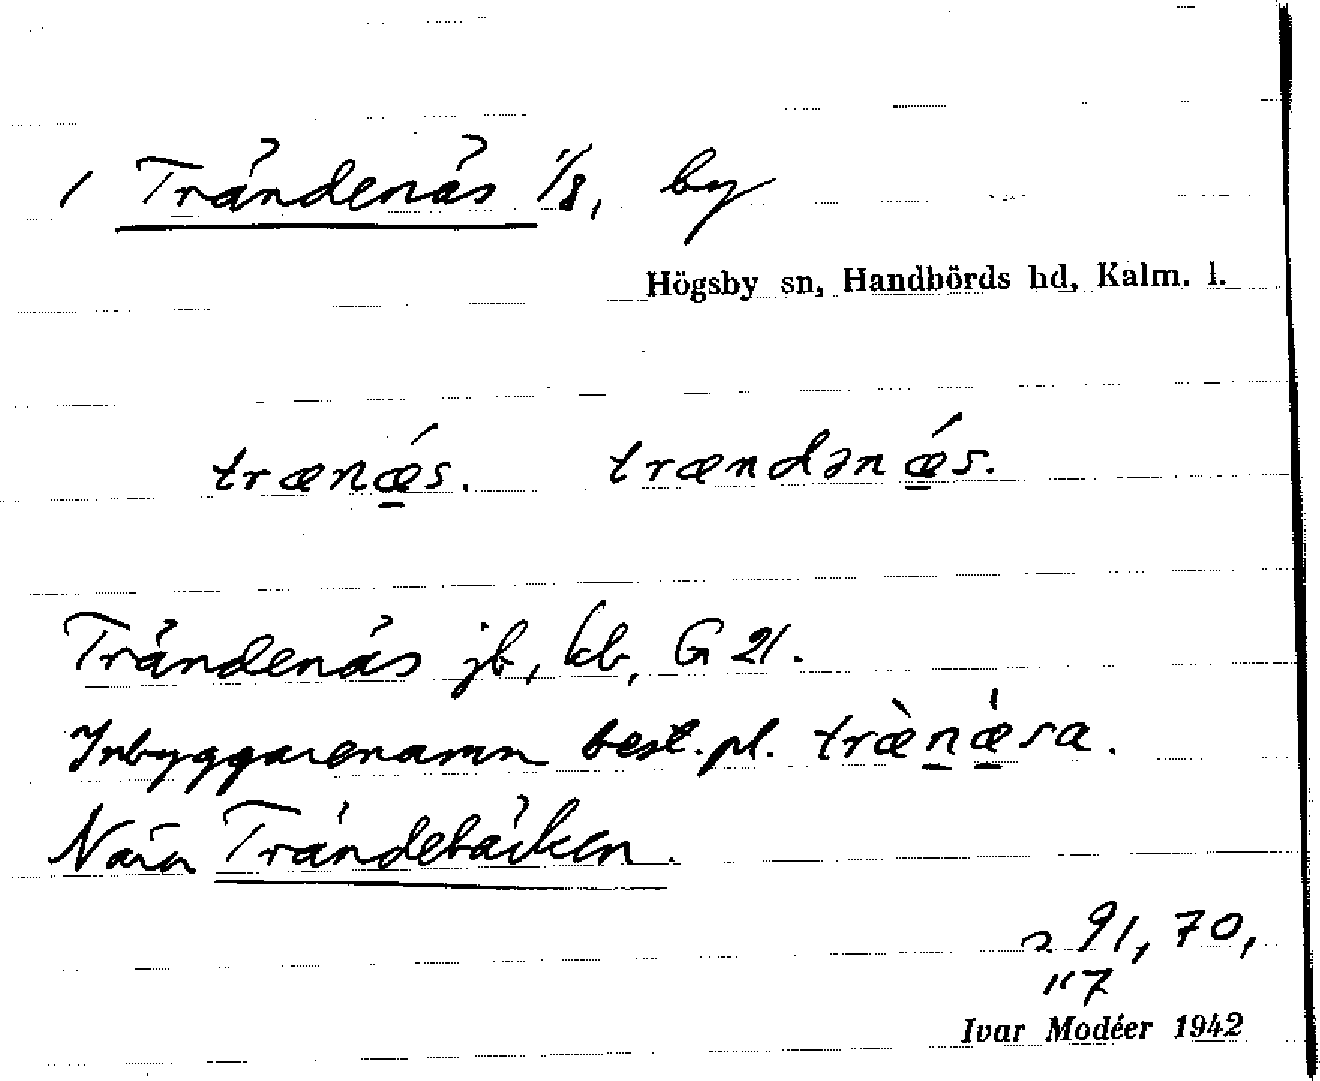 1 Trändenäs 1/8, by
Högsby sn, Handbörds hd, Kalm. l.
trænǽs. trændənǽs.
Trändenäs jb, kb, G 21.
Inbyggarenamn best. pl. træ̀næ̍sa.
Nära Trändebäcken.
n 91, 70,
117
Ivar Modéer 1942